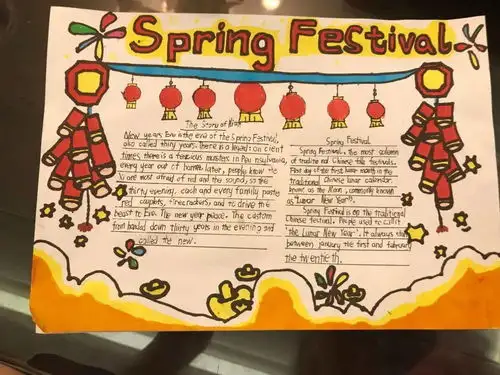 Spring Festival
The Story of Nian
New years Eve is the eve of the Spring Festival,
also called thirty years. There is a legend: ancient
times there is a ferocious monsters in
every year out of Later, people know the
is most afraid of red and the sound, so the
thirty evening, each and every family paste
red couplets, firecrackers, and to drive the
beast to Eva. The new year peace. The custom
from handed down thirty years in the evening and
called the new.
Spring Festival
Spring Festival, the most column
of traditional Chinese folk festivals.
First day of the first lunar month in the
traditional Chinese lunar calendar,
know as the Nian, commonly known
as "Lunar New Year".
Spring Festival is on the traditional
Chinese festival. People used to call it
the "Lunar New Year". It always
between january the first and february
the twentieth.